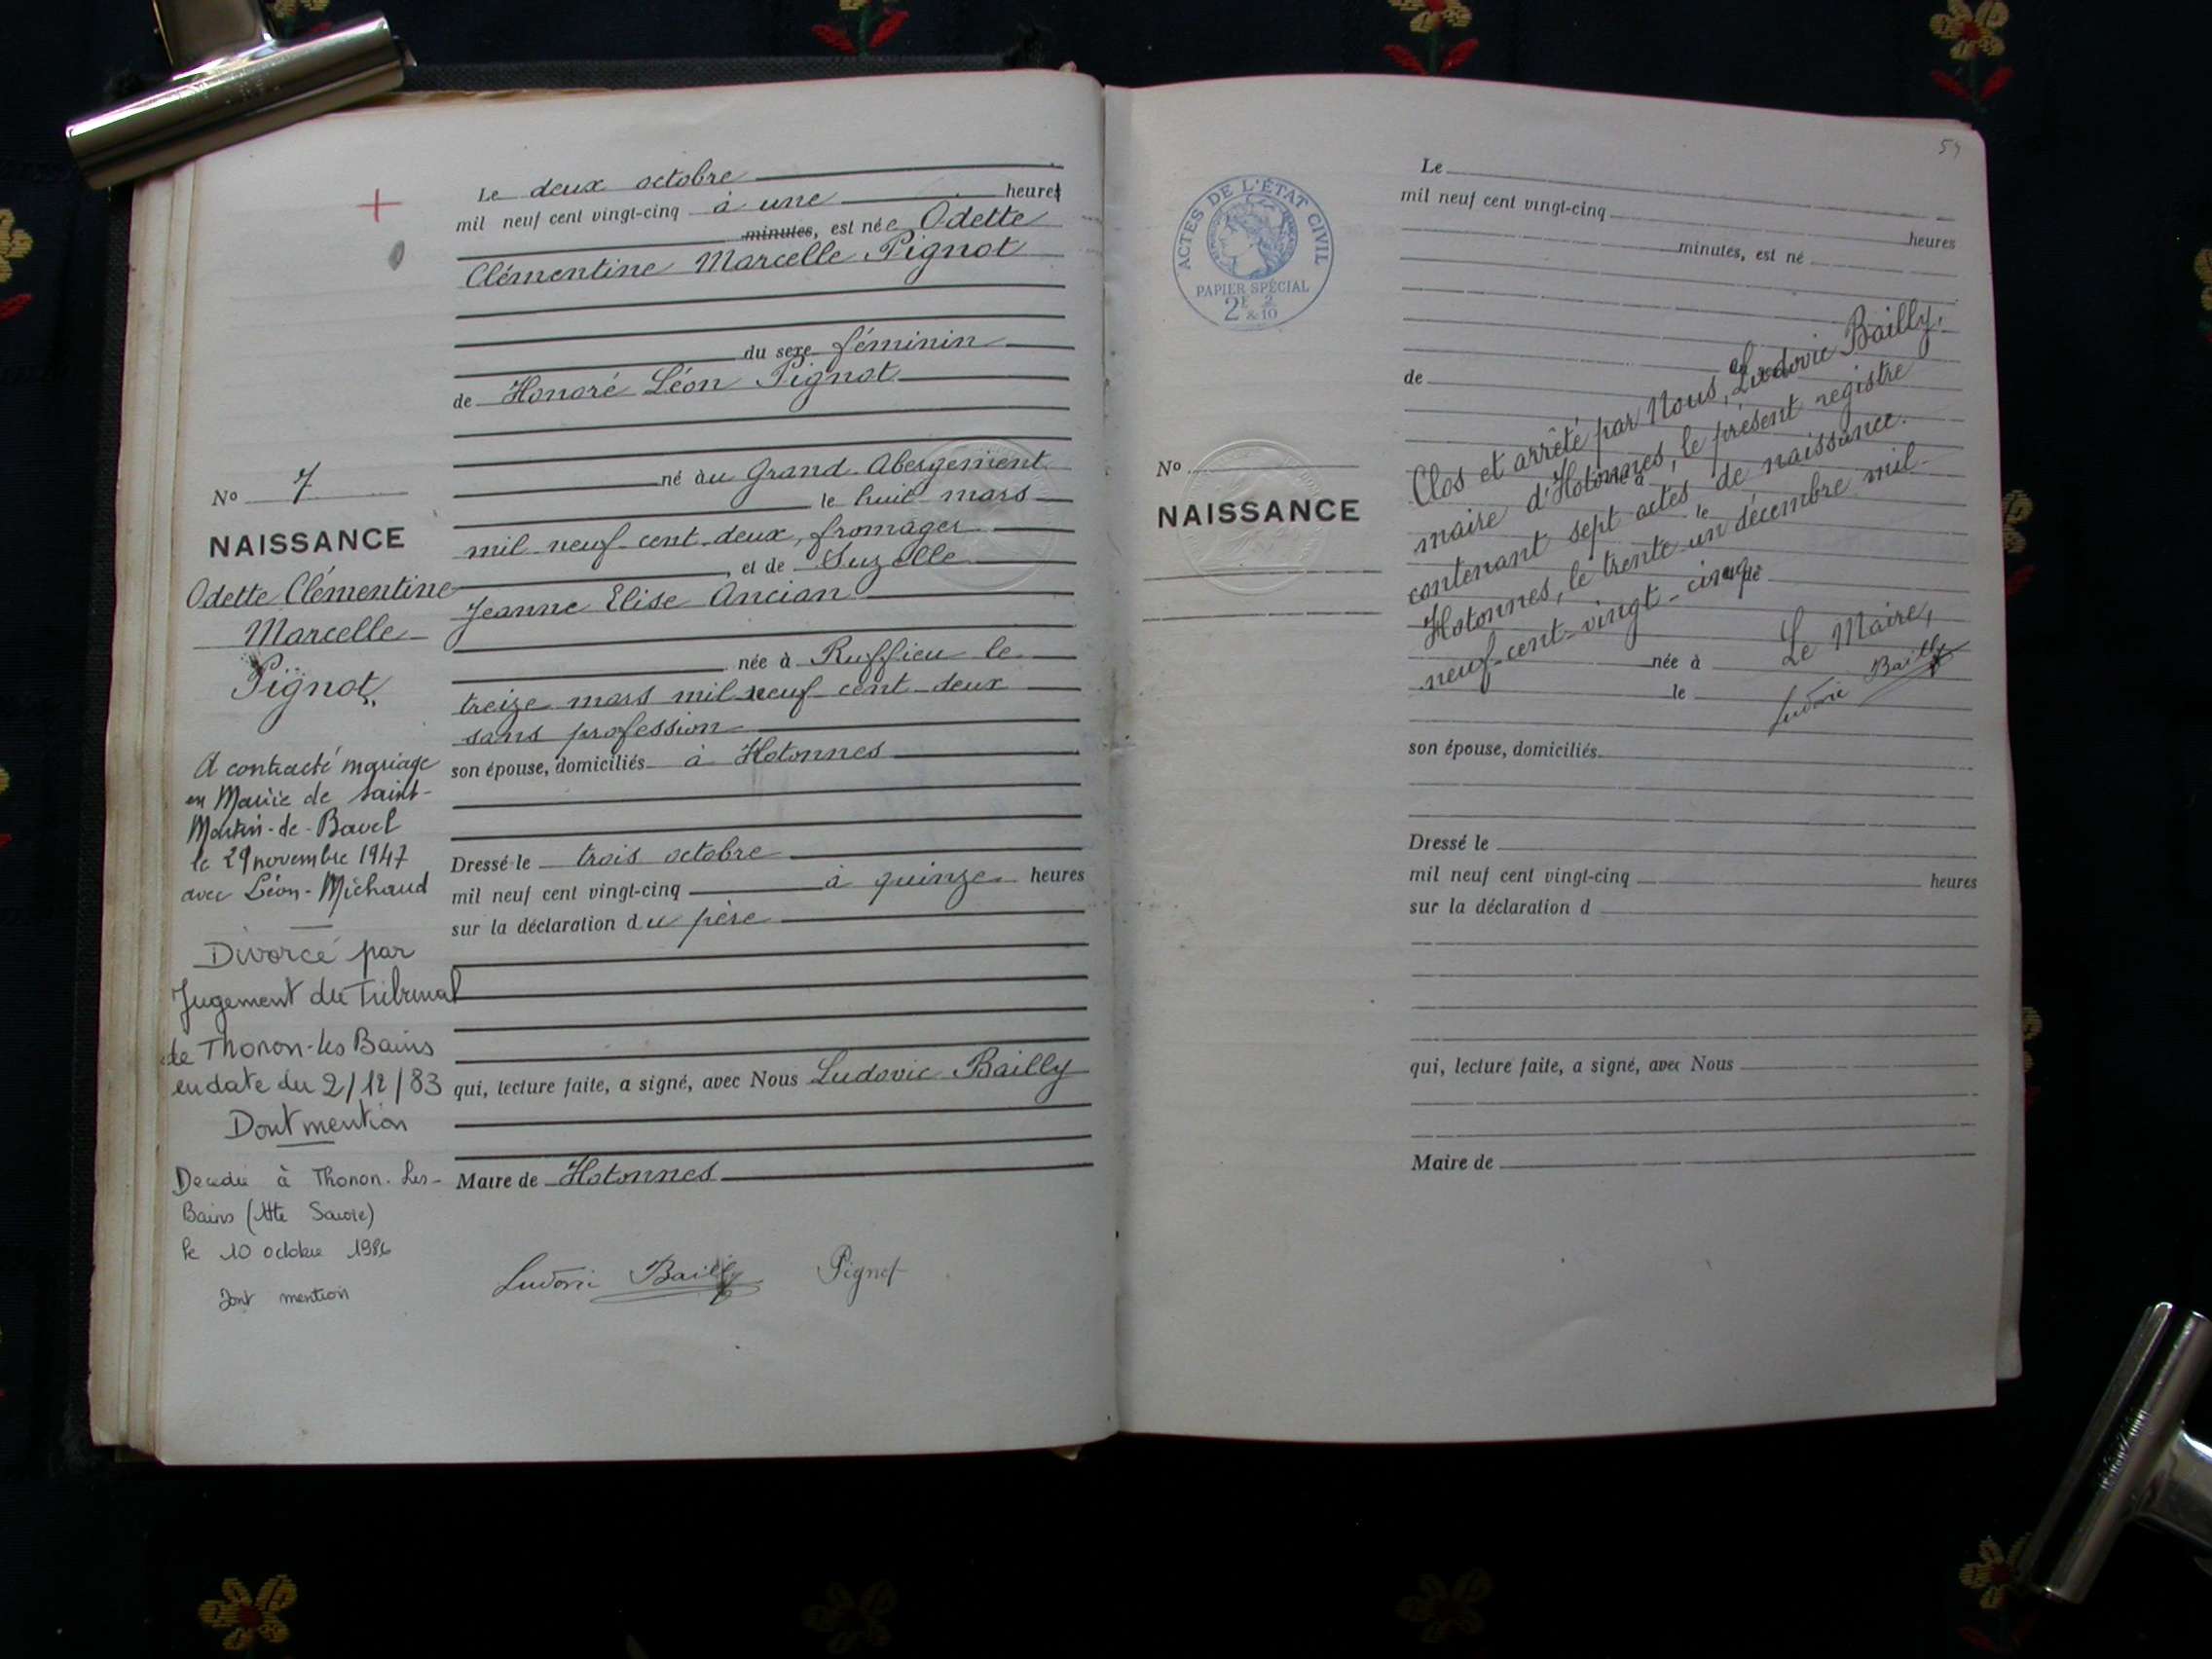 Le deux octobre
mil neuf cent vingt-cinq à une heures
minutes, est née Odette
Clémentine Marcelle Pignot
du sexe féminin
de Honoré Léon Pignot
né au Grand Abergement
le huit mars
mil neuf cent deux, fromager
, et de Suzelle
Jeanne Elise Ancian
née à Ruffieu le
treize mars mil neuf cent deux
sans profession
son épouse, domiciliés à Hotonnes
Dressé le trois octobre
mil neuf cent vingt-cinq à quinze heures
sur la déclaration du père
qui, lecture faite, a signé, avec Nous Ludovic Bailly
Maire de Hotonnes
Ludovic Bailly Pignot
No 7
NAISSANCE
Odette Clémentine
Marcelle
Pignot
A contracté mariage
en Mairie de Saint-
Martin-de-Bavel
le 29 novembre 1947
avec Léon-Michaud
Divorcé par
Jugement du Tribunal
de Thonon-les Bains
en date du 2/12/83
Dont mention
Décédée à Thonon-Les-
Bains (Hte Savoie)
le 10 octobre 1986
Dont mention
ACTES DE L'ÉTAT CIVIL
PAPIER SPÉCIAL
2F & 2/10
No
NAISSANCE
Le
mil neuf cent vingt-cinq
heures
minutes, est né
de
Clos et arrêté par Nous, Ludovic Bailly,
maire d'Hotonnes, le présent registre
contenant sept actes de naissance.
le
Hotonnes, le trente un décembre mil
neuf-cent-vingt-cinq
née à
Le Maire,
le
Ludovic Bailly
son épouse, domiciliés
Dressé le
mil neuf cent vingt-cinq heures
sur la déclaration d
qui, lecture faite, a signé, avec Nous
Maire de